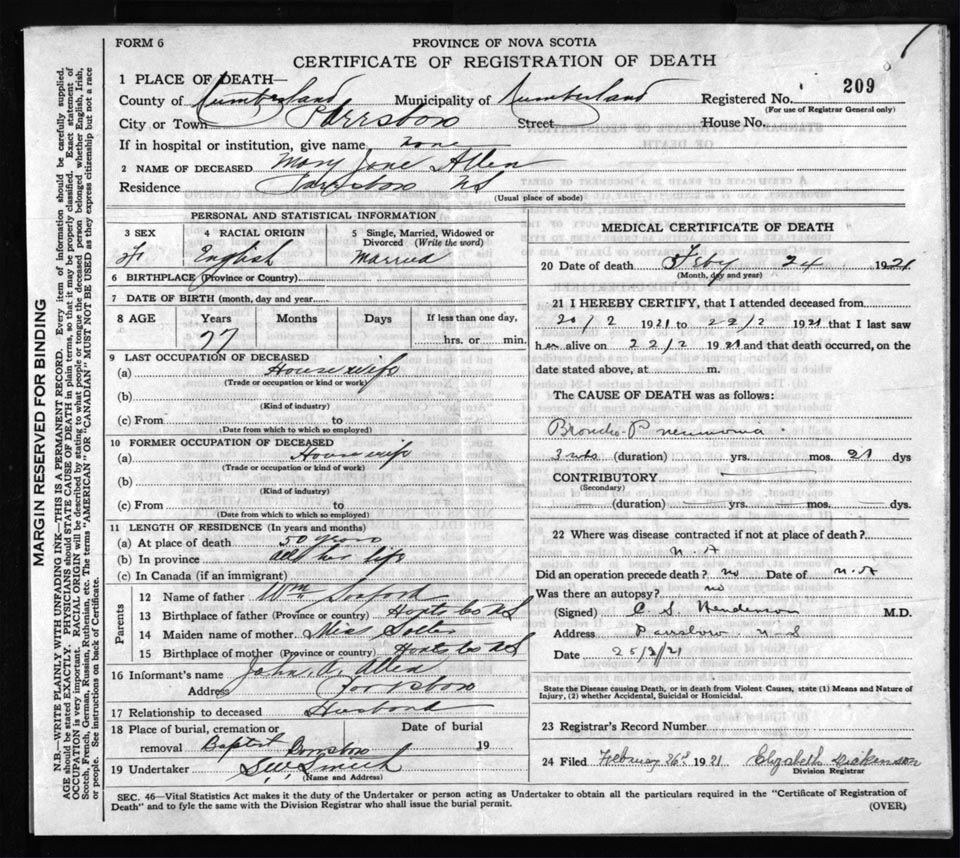 FORM 6
PROVINCE OF NOVA SCOTIA
CERTIFICATE OF REGISTRATION OF DEATH
1 PLACE OF DEATH—
County of Cumberland Municipality of Cumberland Registered No. 209
(For use of Registrar General only)
City or Town Parrsboro Street House No.
If in hospital or institution, give name none
2 NAME OF DECEASED Mary Jane Allen
Residence Parrsboro NS
(Usual place of abode)
PERSONAL AND STATISTICAL INFORMATION
3 SEX
F
4 RACIAL ORIGIN
English
5 Single, Married, Widowed or Divorced (Write the word)
Married
6 BIRTHPLACE (Province or County)
7 DATE OF BIRTH (month, day and year
8 AGE Years Months Days If less than one day,
77 hrs. or min.
9 LAST OCCUPATION OF DECEASED
(a) House wife
(Trade or occupation or kind or work)
(b)
(Kind of industry)
(c) From to
(Date from which to which so employed)
10 FORMER OCCUPATION OF DECEASED
(a) House wife
(Trade or occupation or kind of work)
(b)
(Kind of industry)
(c) From to
(Date from which to which so employed)
11 LENGTH OF RESIDENCE (In years and months)
(a) At place of death 50 years
(b) In province all her life
(c) In Canada (if an immigrant)
Parents
12 Name of father Wm
13 Birthplace of father (Province or country) Hants Co NS
14 Maiden name of mother Miss
15 Birthplace of mother (Province or country) Hants Co NS
16 Informant's name John A Allen
Address Parrsboro
17 Relationship to deceased Husband
18 Place of burial, cremation or removal Date of burial
Baptist Parrsboro 19
19 Undertaker Smith
(Name and Address)
MEDICAL CERTIFICATE OF DEATH
20 Date of death Feby 24 1921
(Month, day and year)
21 I HEREBY CERTIFY, that I attended deceased from
20/2 1921 to 22/2 1921 that I last saw
her alive on 22/2 1921 and that death occurred, on the
date stated above, at m.
The CAUSE OF DEATH was as follows:
Broncho-Pneumonia
3 wks (duration) yrs. mos. 21 dys
CONTRIBUTORY
(Secondary)
(duration) yrs. mos. dys.
22 Where was disease contracted if not at place of death?
N.A
Did an operation precede death? no Date of N.A
Was there an autopsy? no
(Signed) C. S. Henderson M.D.
Address Parrsboro N-S
Date 25/2/21
State the Disease causing Death, or in death from Violent Causes, state (1) Means and Nature of Injury, (2) whether Accidental, Suicidal or Homicidal.
23 Registrar's Record Number
24 Filed February 26th 1921 Elizabeth Dickenson
Division Registrar
SEC. 46—Vital Statistics Act makes it the duty of the Undertaker or person acting as Undertaker to obtain all the particulars required in the "Certificate of Registration of
Death" and to fyle the same with the Division Registrar who shall issue the burial permit.
(OVER)
MARGIN RESERVED FOR BINDING
N.B.—WRITE PLAINLY WITH UNFADING INK—THIS IS A PERMANENT RECORD. Every item of information should be carefully supplied.
AGE should be stated EXACTLY. PHYSICIANS should STATE CAUSE OF DEATH in plain terms, so that it may be properly classified. Exact statement of
OCCUPATION is very important. RACIAL ORIGIN will be described by stating to what people or tongue the deceased person belonged whether English, Irish,
Scotch, French, German, Russian, Ruthenian, etc. The terms "AMERICAN" OR "CANADIAN" MUST NOT BE USED as they express citizenship but not a race
or people. See instructions on back of Certificate.